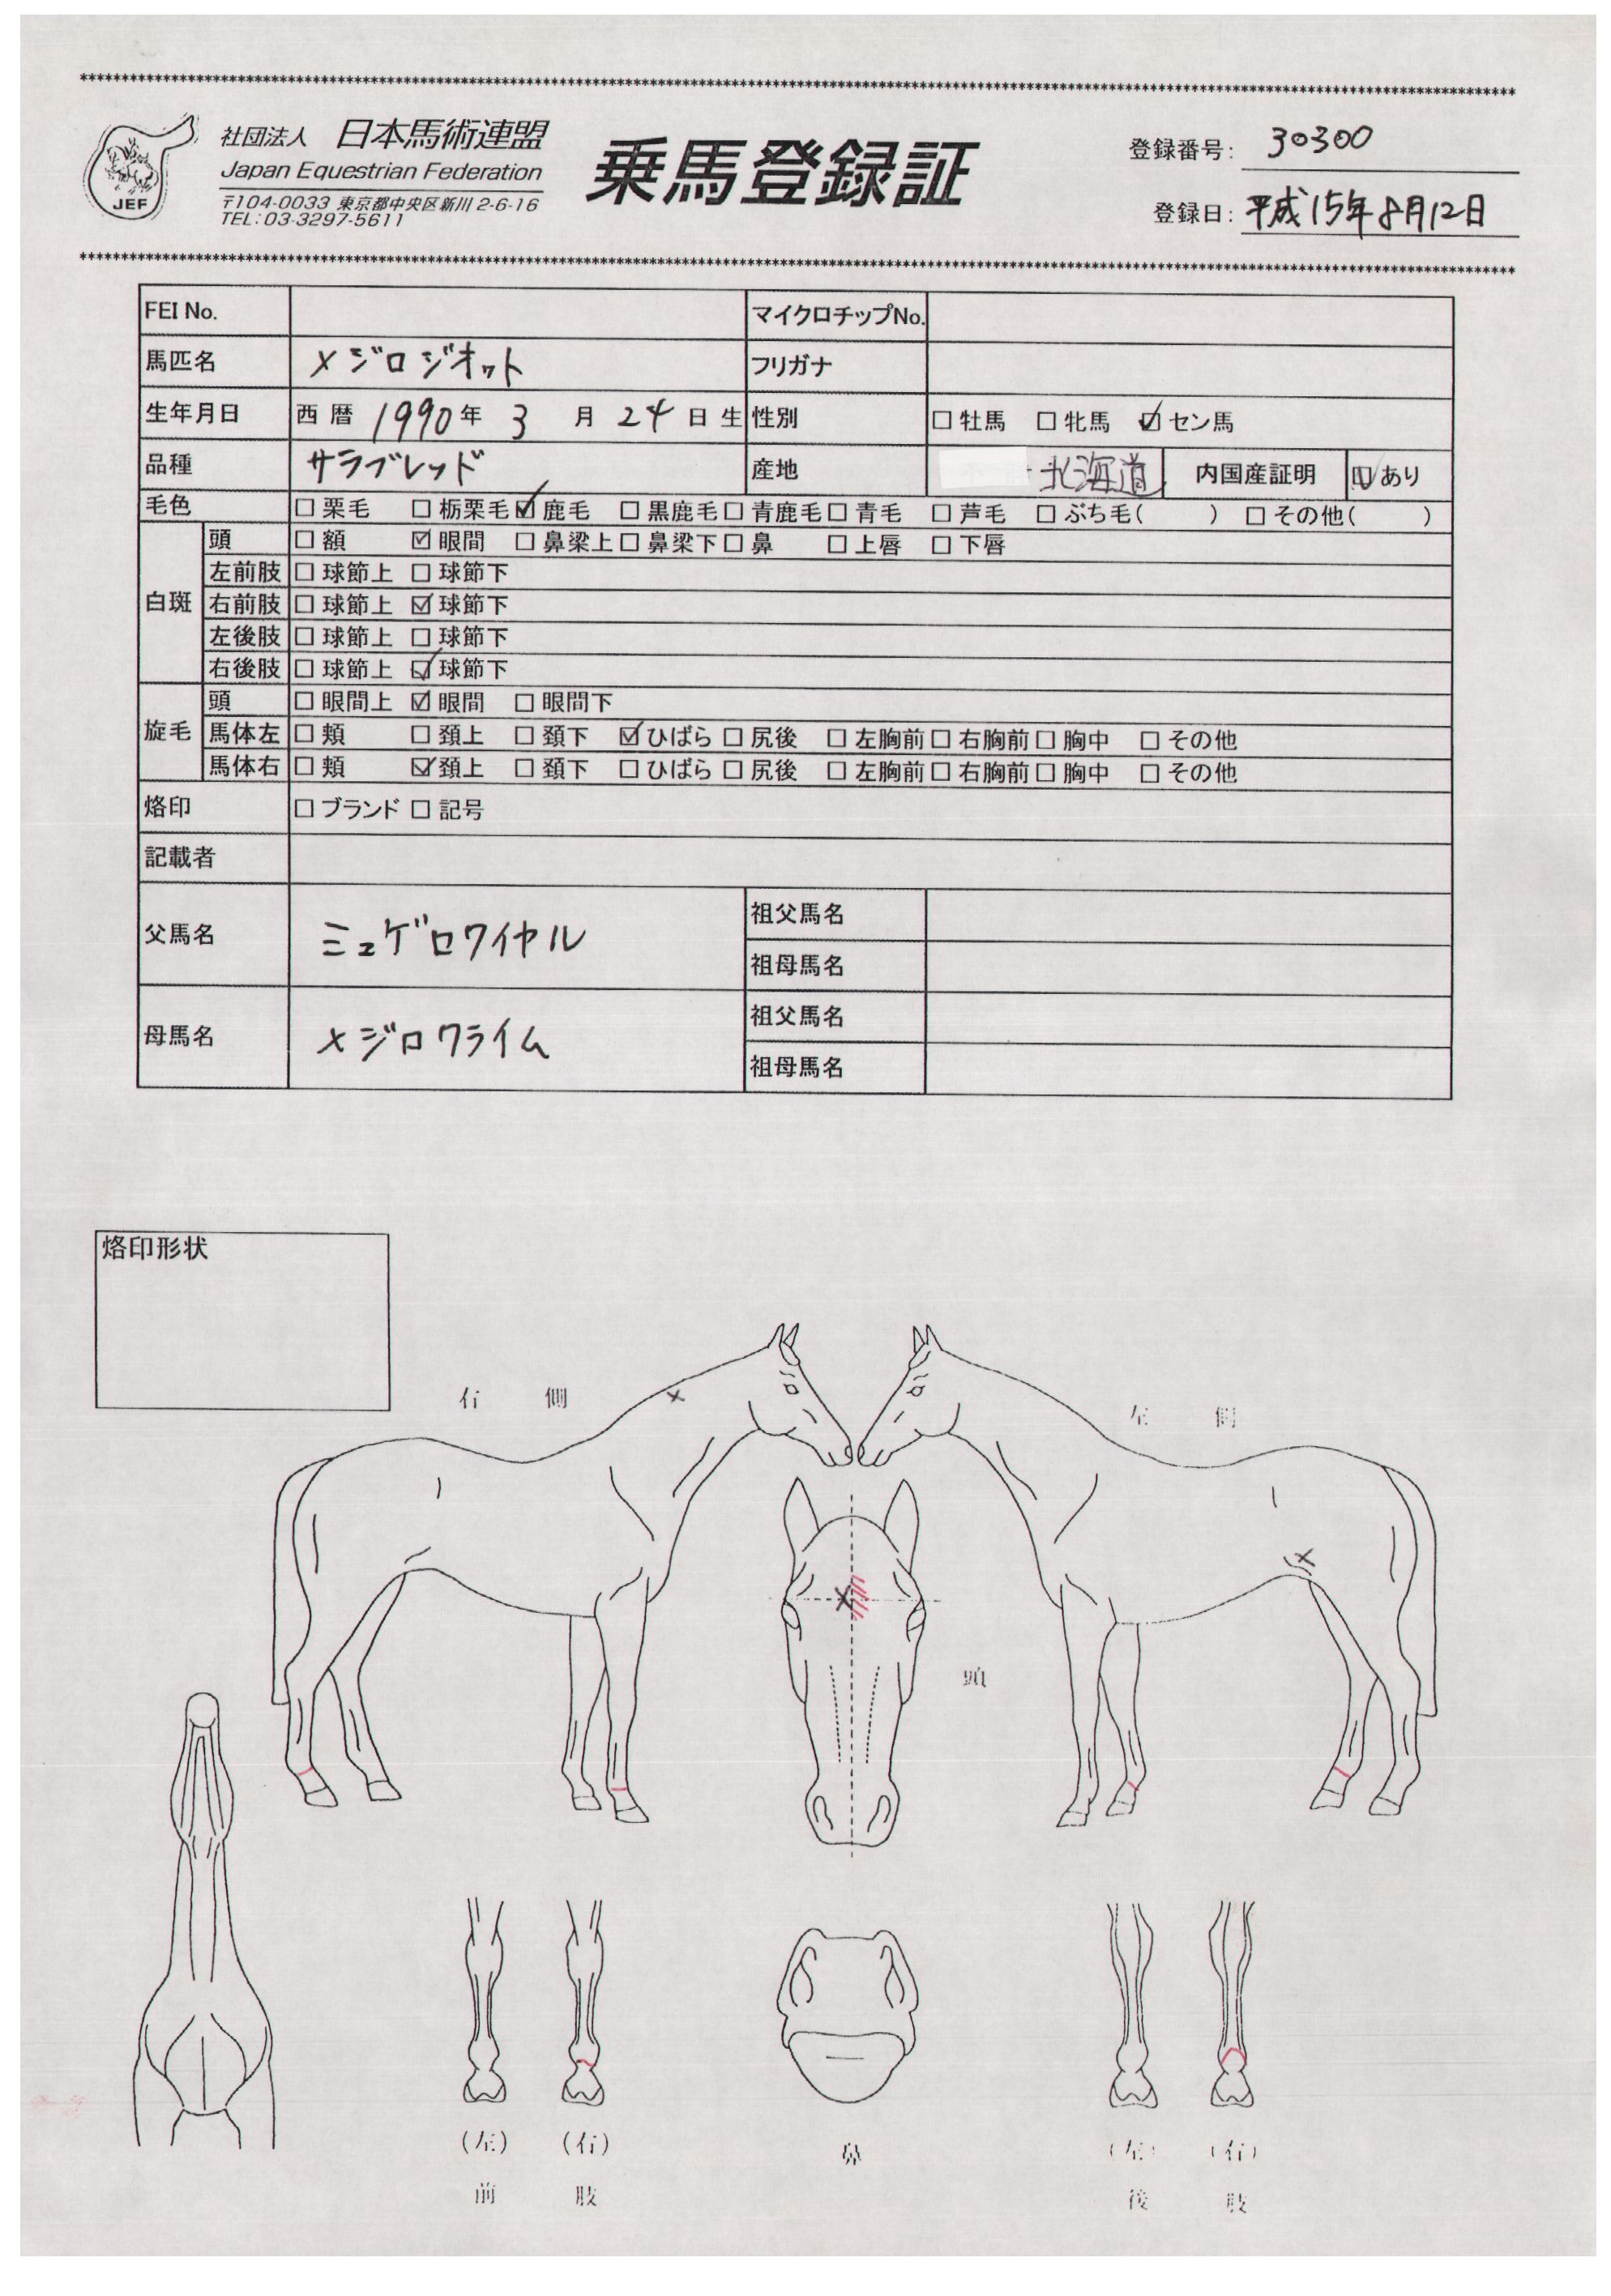 社団法人 日本馬術連盟
Japan Equestrian Federation
〒104-0033 東京都中央区新川 2-6-16
TEL:03-3297-5611
JEF
乗馬登録証
登録番号: 30300
登録日: 平成15年8月12日
FEI No. マイクロチップNo.
馬匹名 メジロジオット フリガナ
生年月日 西暦 1990年 3月 24日生 性別 □牡馬 □牝馬 ☑セン馬
品種 サラブレッド 産地 北海道 内国産証明 ☑あり
毛色 □栗毛 □栃栗毛 ☑鹿毛 □黒鹿毛 □青鹿毛 □青毛 □芦毛 □ぶち毛( ) □その他( )
白斑
頭 □額 ☑眼間 □鼻梁上 □鼻梁下 □鼻 □上唇 □下唇
左前肢 □球節上 □球節下
右前肢 □球節上 ☑球節下
左後肢 □球節上 □球節下
右後肢 □球節上 ☑球節下
旋毛
頭 □眼間上 ☑眼間 □眼間下
馬体左 □頬 □頚上 □頚下 ☑ひばら □尻後 □左胸前 □右胸前 □胸中 □その他
馬体右 □頬 ☑頚上 □頚下 □ひばら □尻後 □左胸前 □右胸前 □胸中 □その他
烙印 □ブランド □記号
記載者
父馬名 ミュゲロワイヤル 祖父馬名
祖母馬名
母馬名 メジロクライム 祖父馬名
祖母馬名
烙印形状
右 側
左 側
頭
(左) (右)
前 肢
鼻
(左) (右)
後 肢